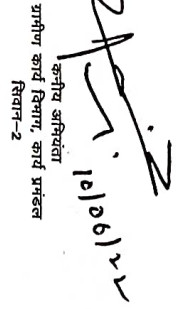 10/06/22
कनीय अभियंता
ग्रामीण कार्य विभाग, कार्य प्रमंडल
सिवान-2